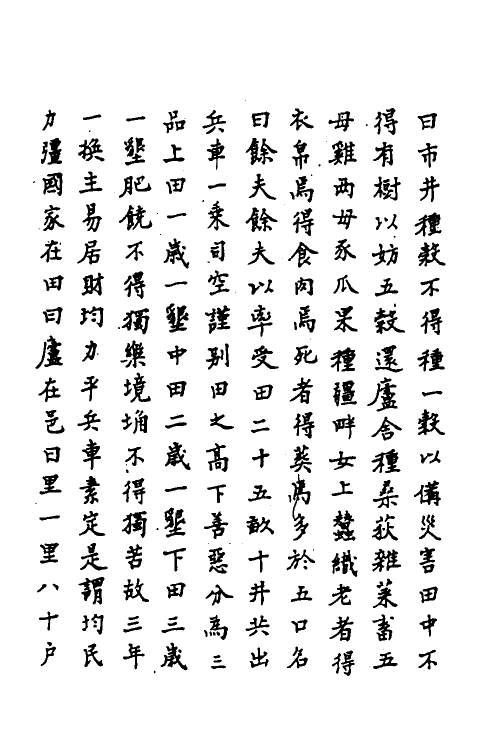 曰市井種穀不得種一穀以備災害田中不
得有樹以妨五穀還廬舍種桑荻雜菜畜五
母雞兩母豕瓜果種疆畔女上蠶織老者得
衣帛焉得食肉焉死者得葬焉多於五口名
曰餘夫餘夫以率受田二十五畝十井共出
兵車一乗司空謹别田之髙下善惡分為三
品上田一歳一墾中田二歳一墾下田三歳
一墾肥饒不得獨樂境埆不得獨苦故三年
一換主易居財均力平兵車素定是謂均民
力彊國家在田曰廬在邑曰里一里八十户